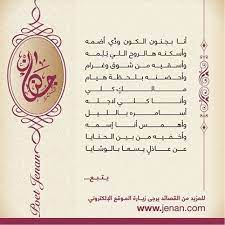 جنان
Poet Jenan
أنا بجنون الكون ودّي أضمه
وأسكنه هالروح اللي يلمه
وأسقيه من شوق وغرام
وأحضنه بلحظة هيام
مالك كلي
وأنا كلي لاجله
أسامره بالليل
وأهمس أنا إسمه
وأخفيه من بين الحنايا
عن عاذل يسعا بالوشايا
يتبع...
للمزيد من القصائد يرجى زيارة الموقع الإلكتروني
www.jenan.com